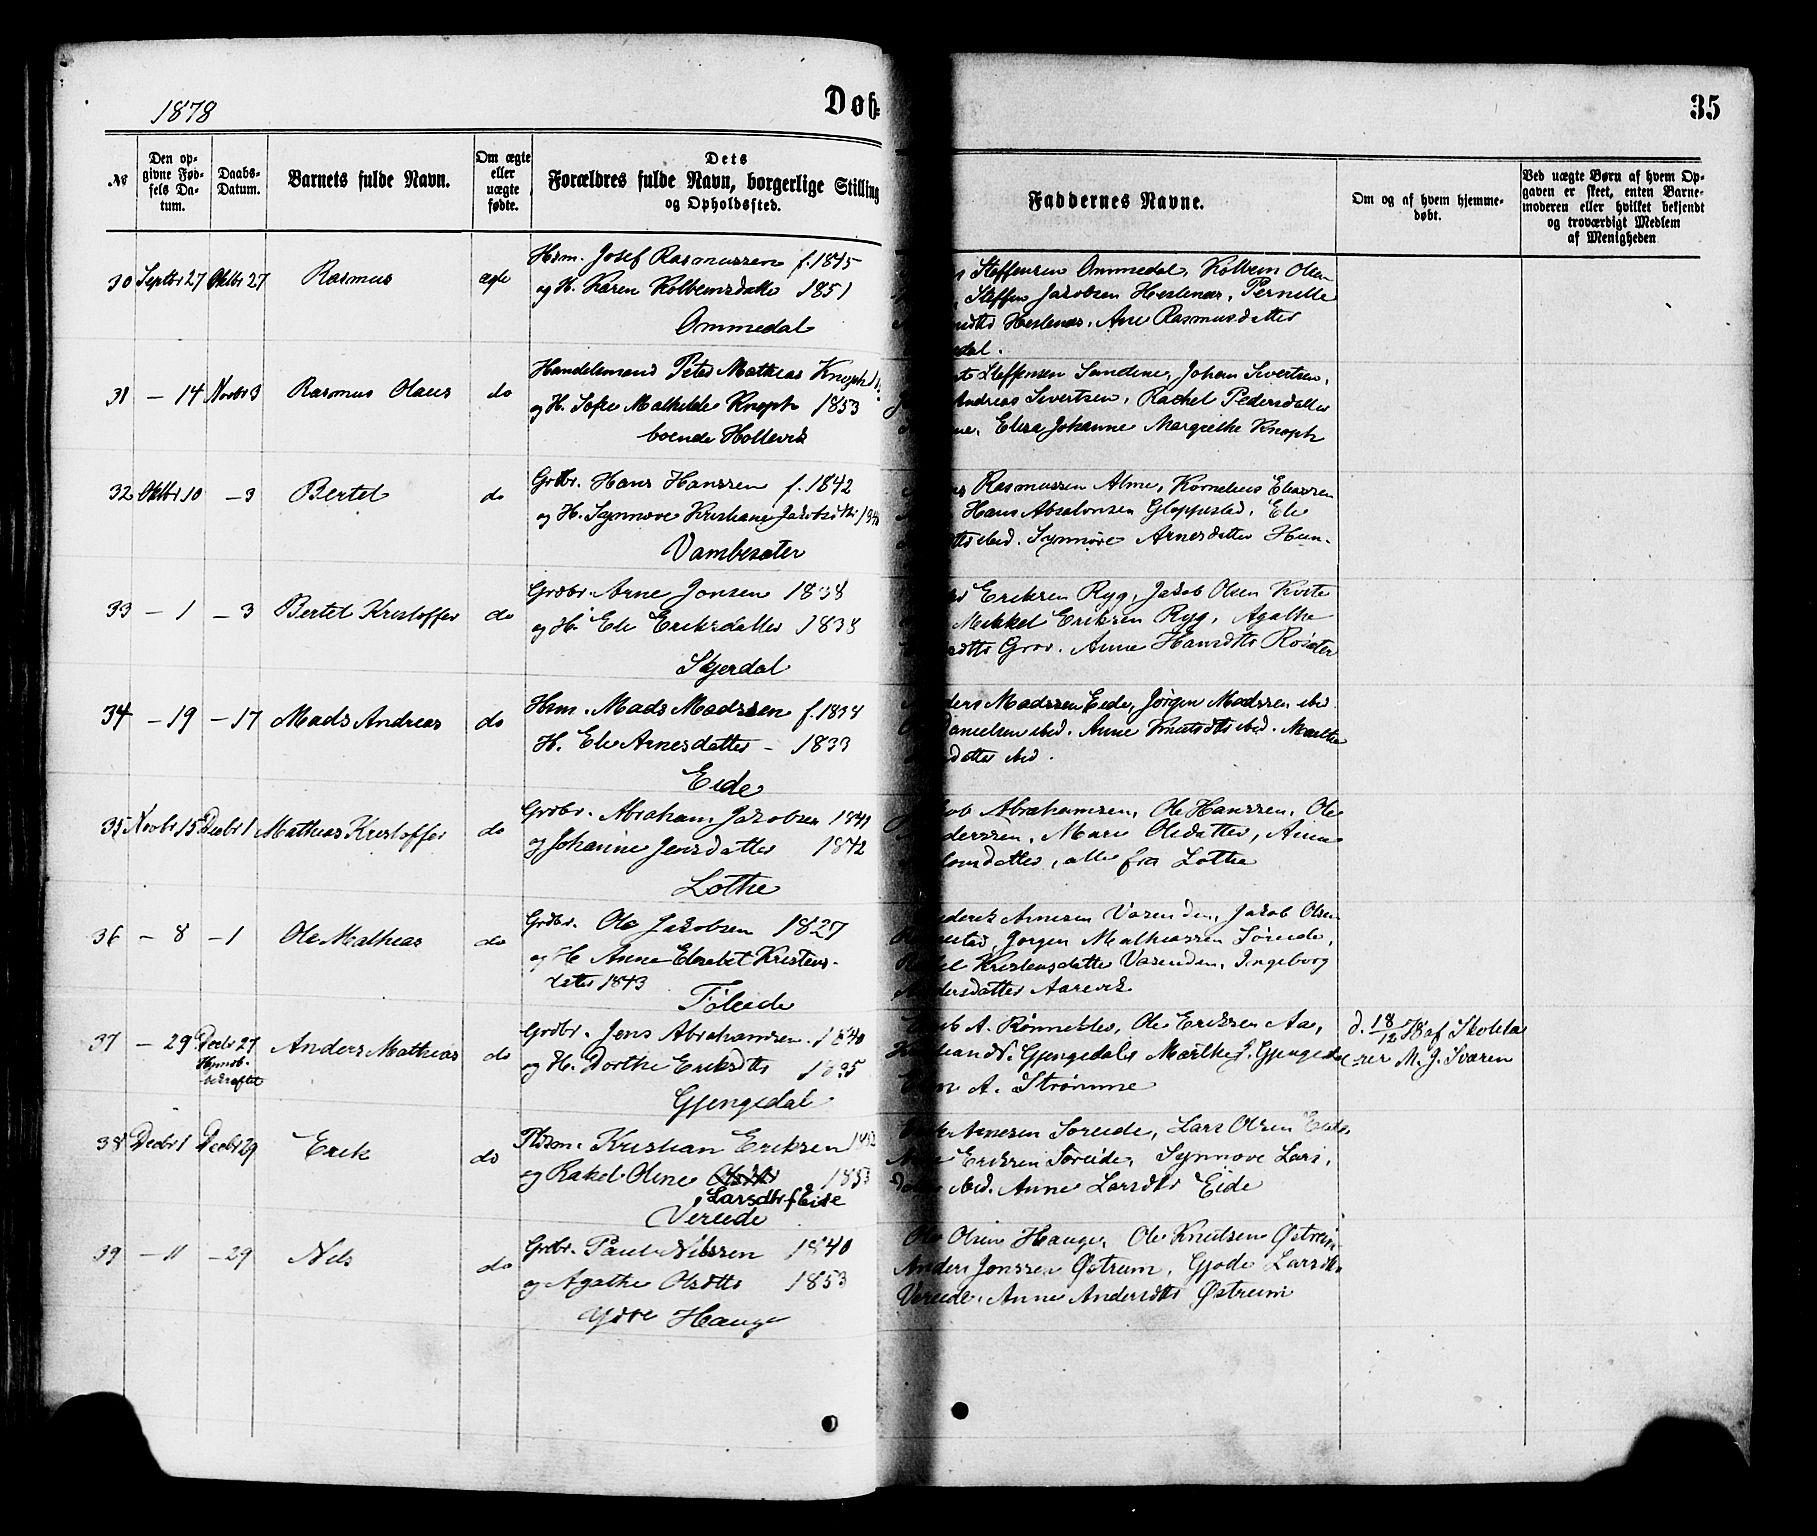 1878
Døb=
35
No
Den op-
givne Fød-
sels Da-
tum.
Daabs-
Datum.
Barnets fulde Navn.
Om ægte
eller
uægte
fødte.
Dets
Forældres fulde Navn, borgerlige Stilling
og Opholdssted.
Faddernes Navne.
Om og af hvem hjemme-
døbt.
Ved uægte Børn af hvem Op-
gaven er skeet, enten Barne-
moderen eller hvilket bekjendt
og troværdigt Medlem
af Menigheden
30 Septbr 27 Oktbr 27 Rasmus ægte
Hsm. Josef Rasmussen f. 1845
og H. Karen Kolbensdatter 1851
Ommedal
Steffensen Ommedal, Kolben Olsen
Steffen Jakobsen Hestenæs, Pernille
Hestenæs, Ane Rasmusdatter
31 – 14 Novbr 3 Rasmus Olaus do
Handelsmand Peter Mathias Knoph
og H. Sofie Mathilde Knoph 1853
boende Hollevik
Steffensen Sandene, Johan Sivertsen,
Andreas Sivertsen, Rachel Pedersdatter
Elisa Johanne Margrethe Knoph
32 Oktbr 10 – 3 Bertel do
Grdbr. Hans Hanssen f. 1842
og H. Synnøve Kristiane Jakobsdtr
Vambesæter
Rasmussen Alme, Kornelius Eliassen
Hans Absalonsen Gloppestad, Eli
ibid. Synnøve Arnesdatter Hun.
33 – 1 – 3 Bertel Kristoffer do
Grdbr. Arne Jonsen 1838
og H. Eli Eriksdatter 1838
Skjerdal
Eriksen Ryg, Jakob Olsen Kviste
Mikkel Eriksen Ryg, Agathe
Grov. Anne Hansdtr Rosæter
34 – 19 – 17 Mads Andreas do
Hsm. Mads Madssen f. 1838
H. Eli Arnesdatter – 1833
Eide
Madssen Eide, Jørgen Madssen ibid
Danielsen ibid. Anne Knutsdtr ibid. Marthe
datter ibid.
35 Novbr 15 Decbr 1 Mathias Kristoffer do
Grdbr. Abraham Jakobsen
og Johanne Jensdatter 1842
Lothe
Abrahamsen, Ole Hanssen, Ole
Marie Olsdatter, Anna
alle fra Lothe
36 – 8 – 1 Ole Mathias do
Grdbr. Ole Jakobsen 1827
og H. Anne Elisabet Kristens-
datter 1843
Føleide
Arnesen Vasenden, Jakob Olsen
Jørgen Mathiassen Søreide,
Kristensdatter Vasenden, Ingeborg
Andersdatter Aarevik
37 – 29 Decbr 27 Anders Mathias do
Hjemdb.
bekræftet
Grdbr. Jens Abrahamsen 1840
og H. Dorthe Eriksdtr 1835
Gjengedal
A. Rønnekles, Ole Eriksen Aa,
Gjengedal, Marthe J. Gjengedal
A. Strømme
d. 18/12 78 af Skolelæ
rer M. J. Sværen
38 Decbr 1 Decbr 29 Erik do
Pldsm. Kristian Eriksen 1852
og Rakel Oline Olsdtr 1853
Larsdtr f. Eide
Vereide
Arnesen Søreide, Lars Olsen Eide
Eriksen Søreide, Synnøve Lars,
ibid. Anne Larsdtr Eide
39 – 11 – 29 Nils do
Grdbr. Paul Nilssen 1840
og Agathe Olsdtr 1853
Ydre Hauge
Ole Olsen Hauge, Ole Knutsen Østrem
Anders Jonssen Østrem, Gjode Larsdtr
Vereide, Anne Andersdtr Østreim